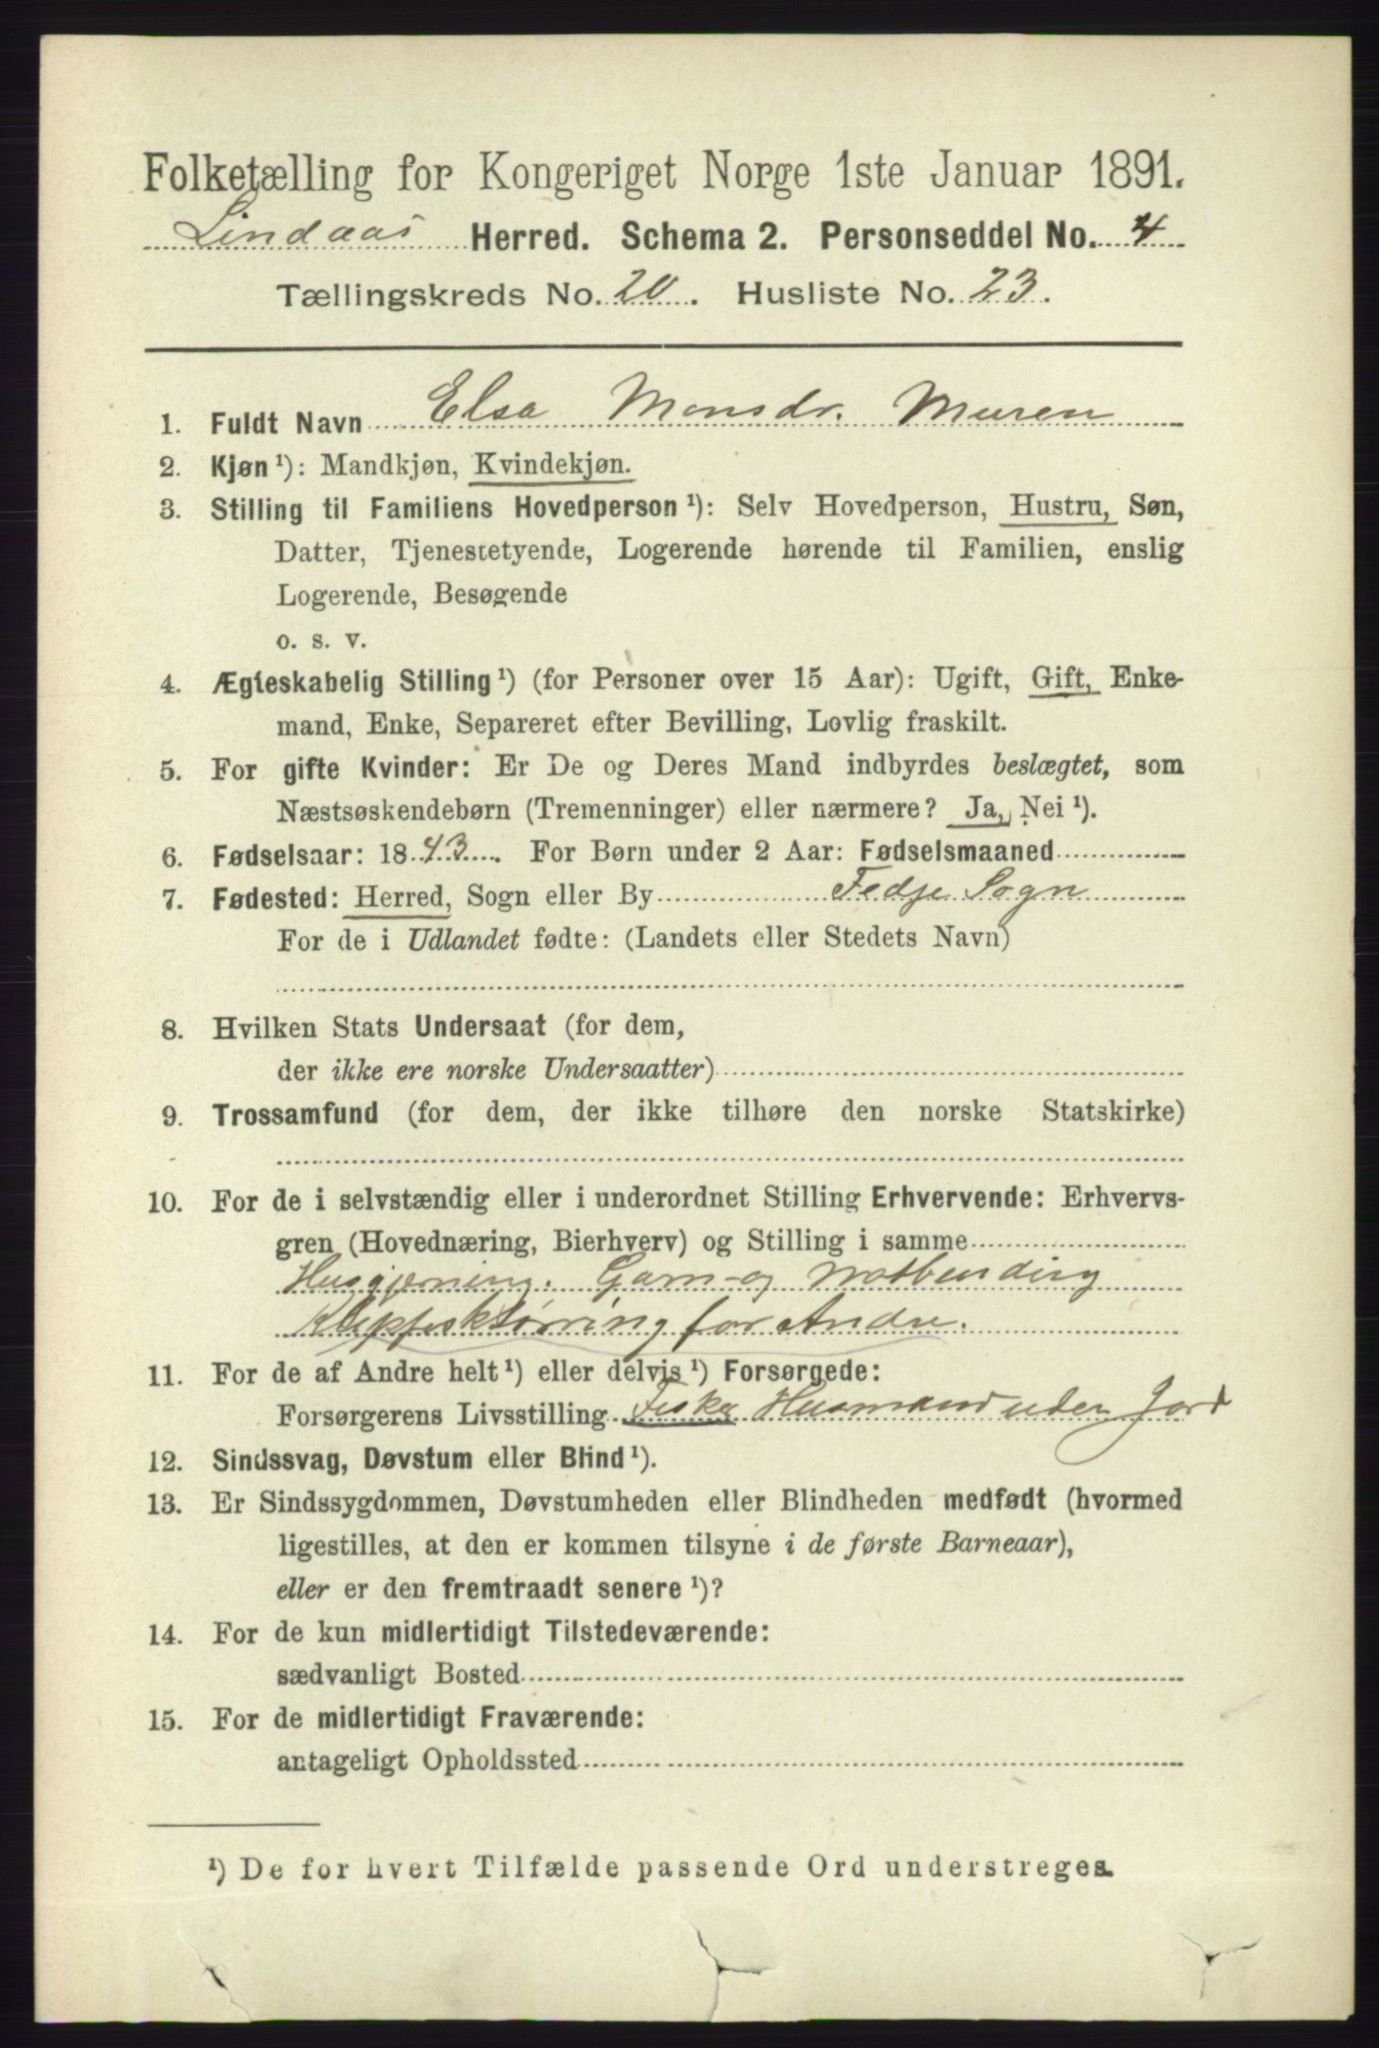 Folketælling for Kongeriget Norge 1ste Januar 1891.
Lindaas Herred. Schema 2. Personseddel No. 4
Tællingskreds No. 20. Husliste No. 23.
1. Fuldt Navn Elsa Monsdr. Muren
2. Kjøn ¹): Mandkjøn, Kvindekjøn.
3. Stilling til Familiens Hovedperson ¹): Selv Hovedperson, Hustru, Søn,
Datter, Tjenestetyende, Logerende hørende til Familien, enslig
Logerende, Besøgende
o. s. v.
4. Ægteskabelig Stilling ¹) (for Personer over 15 Aar): Ugift, Gift, Enke-
mand, Enke, Separeret efter Bevilling, Lovlig fraskilt.
5. For gifte Kvinder: Er De og Deres Mand indbyrdes beslægtet, som
Næstsøskendebørn (Tremenninger) eller nærmere? Ja, Nei ¹).
6. Fødselsaar: 1843. For Børn under 2 Aar: Fødselsmaaned
7. Fødested: Herred, Sogn eller By Fedje Sogn
For de i Udlandet fødte: (Landets eller Stedets Navn)
8. Hvilken Stats Undersaat (for dem,
der ikke ere norske Undersaatter)
9. Trossamfund (for dem, der ikke tilhøre den norske Statskirke)
10. For de i selvstændig eller i underordnet Stilling Erhvervende: Erhvervs-
gren (Hovednæring, Bierhverv) og Stilling i samme
Husgjerning. Garn- og Notbinding
Klipfisktørring for Andre.
11. For de af Andre helt ¹) eller delvis ¹) Forsørgede:
Forsørgerens Livsstilling Fisker Husmand uden Jord
12. Sindssvag, Døvstum eller Blind ¹).
13. Er Sindssygdommen, Døvstumheden eller Blindheden medfødt (hvormed
ligestilles, at den er kommen tilsyne i de første Barneaar),
eller er den fremtraadt senere ¹)?
14. For de kun midlertidigt Tilstedeværende:
sædvanligt Bosted
15. For de midlertidigt Fraværende:
antageligt Opholdssted
¹) De for hvert Tilfælde passende Ord understreges.